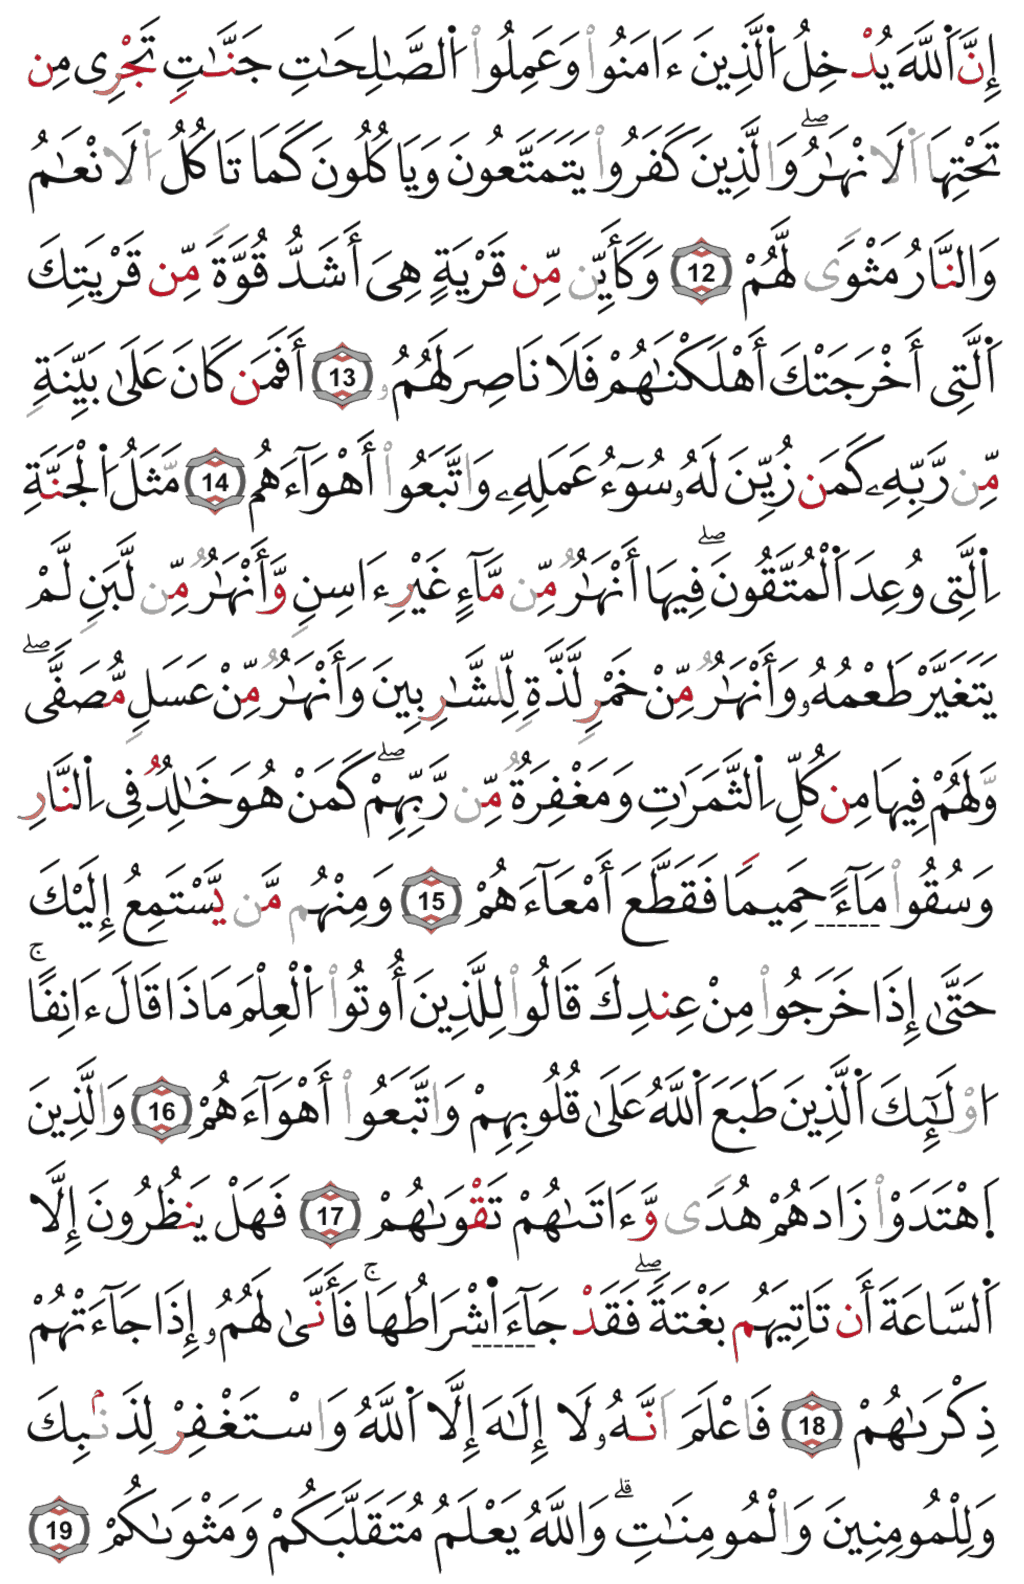 إِنَّ اَ۬للَّهَ يُدْخِلُ اُ۬لَّذِينَ ءَامَنُواْ وَعَمِلُواْ اُ۬لصَّٰلِحَٰتِ جَنَّٰتٖ تَجْرِى مِن
تَحْتِهَا اَ۬لَانْهَٰرُۖ وَالَّذِينَ كَفَرُواْ يَتَمَتَّعُونَ وَيَاكُلُونَ كَمَا تَاكُلُ اُ۬لَانْعَٰمُ
وَالنَّارُ مَثْوٗى لَّهُمْ 12 وَكَأَيِّن مِّن قَرْيَةٍ هِىَ أَشَدُّ قُوَّةٗ مِّن قَرْيَتِكَ
اَ۬لَّتِى أَخْرَجَتْكَ أَهْلَكْنَٰهُمْ فَلَا نَاصِرَ لَهُمُۥ 13 أَفَمَن كَانَ عَلَىٰ بَيِّنَةٖ
مِّن رَّبِّهِۦ كَمَن زُيِّنَ لَهُۥ سُوٓءُ عَمَلِهِۦ وَاتَّبَعُواْ أَهْوَآءَهُم 14 مَّثَلُ اُ۬لْجَنَّةِ
اِ۬لَّتِى وُعِدَ اَ۬لْمُتَّقُونَۖ فِيهَا أَنْهَٰرٞ مِّن مَّآءٍ غَيْرِ ءَاسِنٖ وَأَنْهَٰرٞ مِّن لَّبَنٖ لَّمْ
يَتَغَيَّرْ طَعْمُهُۥ وَأَنْهَٰرٞ مِّنْ خَمْرٖ لَّذَّةٖ لِّلشَّٰرِبِينَ وَأَنْهَٰرٞ مِّنْ عَسَلٖ مُّصَفّٗىۖ
وَلَهُمْ فِيهَا مِن كُلِّ اِ۬لثَّمَرَٰتِ وَمَغْفِرَةٞ مِّن رَّبِّهِمْۖ كَمَنْ هُوَ خَٰلِدٞ فِى اِ۬لنَّارِ
وَسُقُواْ مَآءً حَمِيمٗا فَقَطَّعَ أَمْعَآءَهُمْ 15 وَمِنْهُم مَّن يَّسْتَمِعُ إِلَيْكَ
حَتَّىٰ إِذَا خَرَجُواْ مِنْ عِندِكَ قَالُواْ لِلَّذِينَ أُوتُواْ اُ۬لْعِلْمَ مَاذَا قَالَ ءَانِفًاۚ
ا۟وْلَٰٓئِكَ اَ۬لَّذِينَ طَبَعَ اَ۬للَّهُ عَلَىٰ قُلُوبِهِمْ وَاتَّبَعُواْ أَهْوَآءَهُمْ 16 وَالَّذِينَ
اِ۪هْتَدَوْاْ زَادَهُمْ هُدٗى وَءَاتَىٰهُمْ تَقْوَىٰهُمْ 17 فَهَلْ يَنظُرُونَ إِلَّا
اَ۬لسَّاعَةَ أَن تَاتِيَهُم بَغْتَةٗۖ فَقَدْ جَآءَ اشْرَاطُهَاۚ فَأَنَّىٰ لَهُمُۥ إِذَا جَآءَتْهُمْ
ذِكْرَىٰهُمْ 18 فَاعْلَمَ اَنَّهُۥ لَا إِلَٰهَ إِلَّا اَ۬للَّهُ وَاسْتَغْفِرْ لِذَنۢبِكَ
وَلِلْمُومِنِينَ وَالْمُومِنَٰتِۗ وَاللَّهُ يَعْلَمُ مُتَقَلَّبَكُمْ وَمَثْوَىٰكُمْ 19